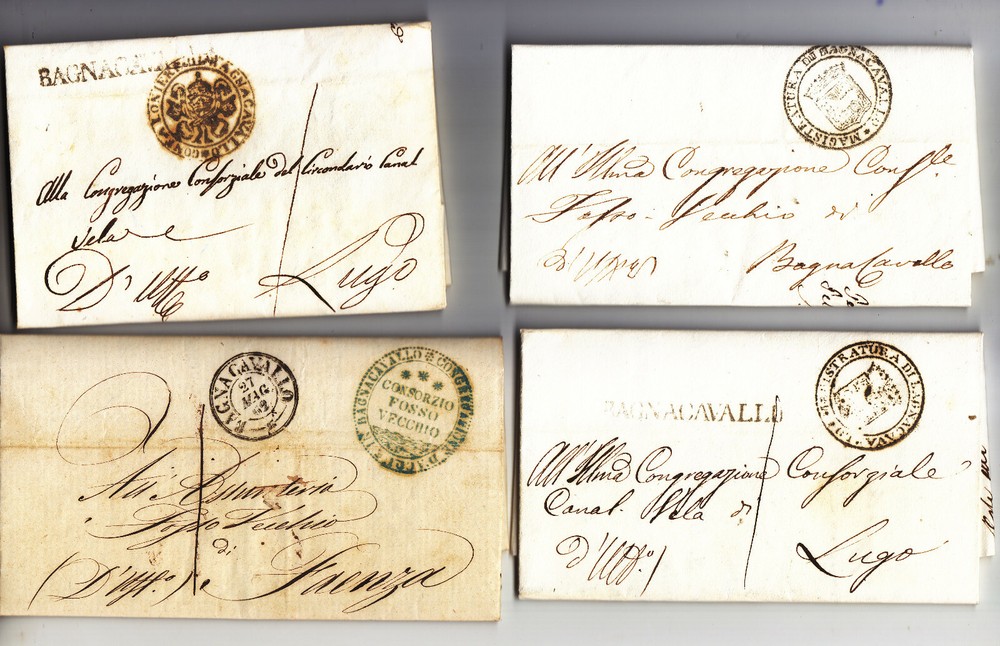 BAGNACAVALLO
GONFALONIERE DI BAGNACAVALLO
Alla Congregazione Consorziale del Circondario Canal
Vela
D'Uffo
Lugo
MAGISTRATURA DI BAGNACAVALLO
All'Illma Congregazione Consle
Fosso Vecchio di
D'Uffo
BagnaCavallo
BAGNACAVALLO
27
MAG
62
CONGREGAZIONE IN BAGNACAVALLO
CONSORZIO
FOSSO
VECCHIO
All'Assunteria
Fosso Vecchio
di
(D'Uffo.)
Faenza
BAGNACAVALLO
MAGISTRATURA DI BAGNACAVALLO
All'Illma Congregazione Consorziale
Canal Vela di
D'Uffo.)
Lugo